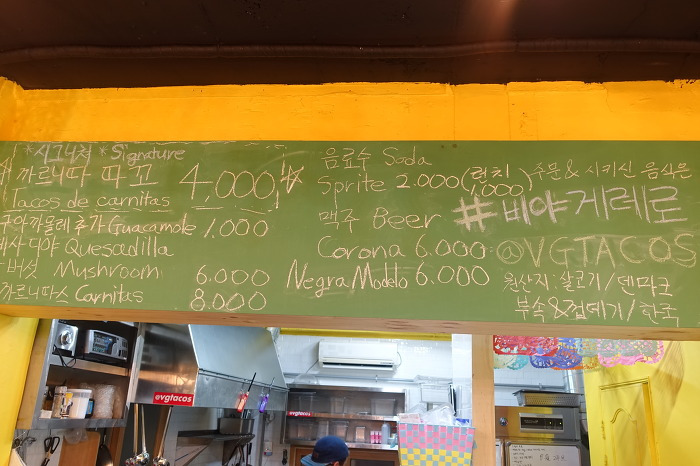 *시그니쳐 *Signature
까르니따 따꼬 4,000,
Tacos de carnitas
과까몰레 추가 Guacamole 1,000
께사디야 Quesadilla
버섯 Mushroom 6.000
까르니따스 Carnitas 8.000
음료수 Soda
Sprite 2.000 (런치 1,000)
맥주 Beer
Corona 6.000
Negra Modelo 6.000
주문 & 시키신 음식은
#비야게레로
@VGTACOS
원산지: 살코기/덴마크
부속&껍데기/한국
@vgtacos
@vgtacos